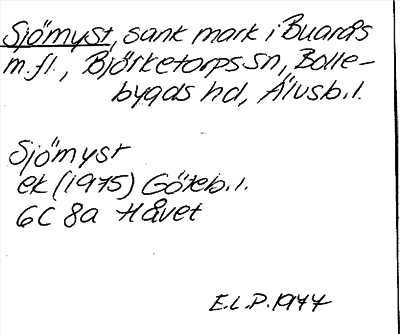 Sjömyst, sank mark i Buarås
m.fl., Björketorps sn, Bolle-
bygds hd, Älvsb.l.
Sjömyst
ek (1975) Göteb.l.
6C 8a Håvet
E.L.P. 1977